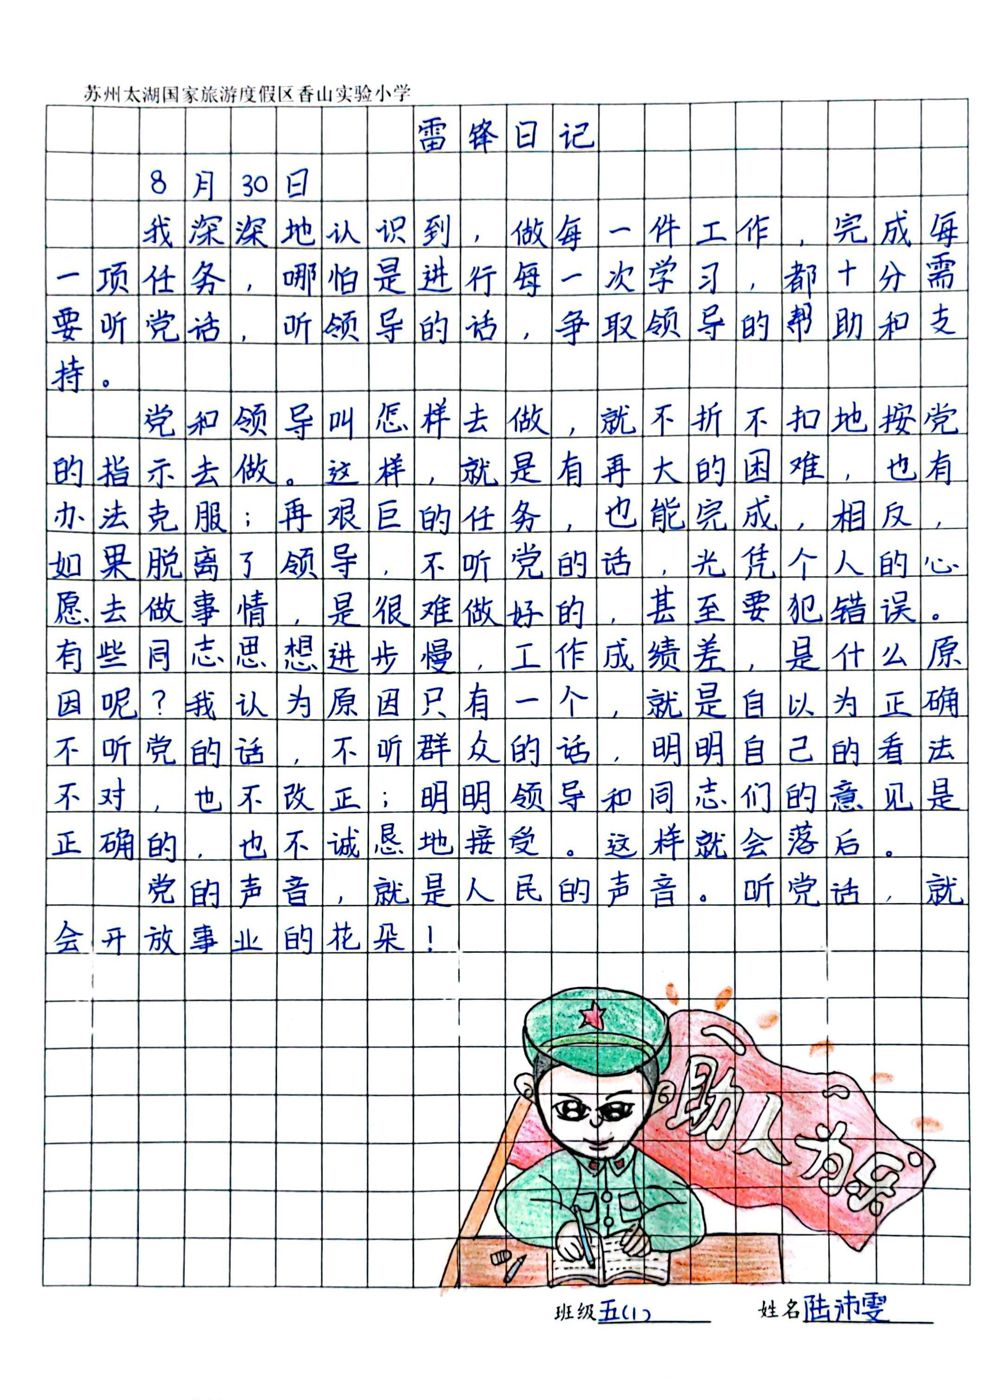 苏州太湖国家旅游度假区香山实验小学
雷锋日记
8月30日
我深深地认识到，做每一件工作，完成每
一项任务，哪怕是进行每一次学习，都十分需
要听党话，听领导的话，争取领导的帮助和支
持。
党和领导叫怎样去做，就不折不扣地按党
的指示去做。这样，就是有再大的困难，也有
办法克服；再艰巨的任务，也能完成，相反，
如果脱离了领导，不听党的话，光凭个人的心
愿去做事情，是很难做好的，甚至要犯错误。
有些同志思想进步慢，工作成绩差，是什么原
因呢？我认为原因只有一个，就是自以为正确
不听党的话，不听群众的话，明明自己的看法
不对，也不改正；明明领导和同志们的意见是
正确的，也不诚恳地接受。这样就会落后。
党的声音，就是人民的声音。听党话，就
会开放事业的花朵！
助人为乐
班级五(1) 姓名陆沛雯